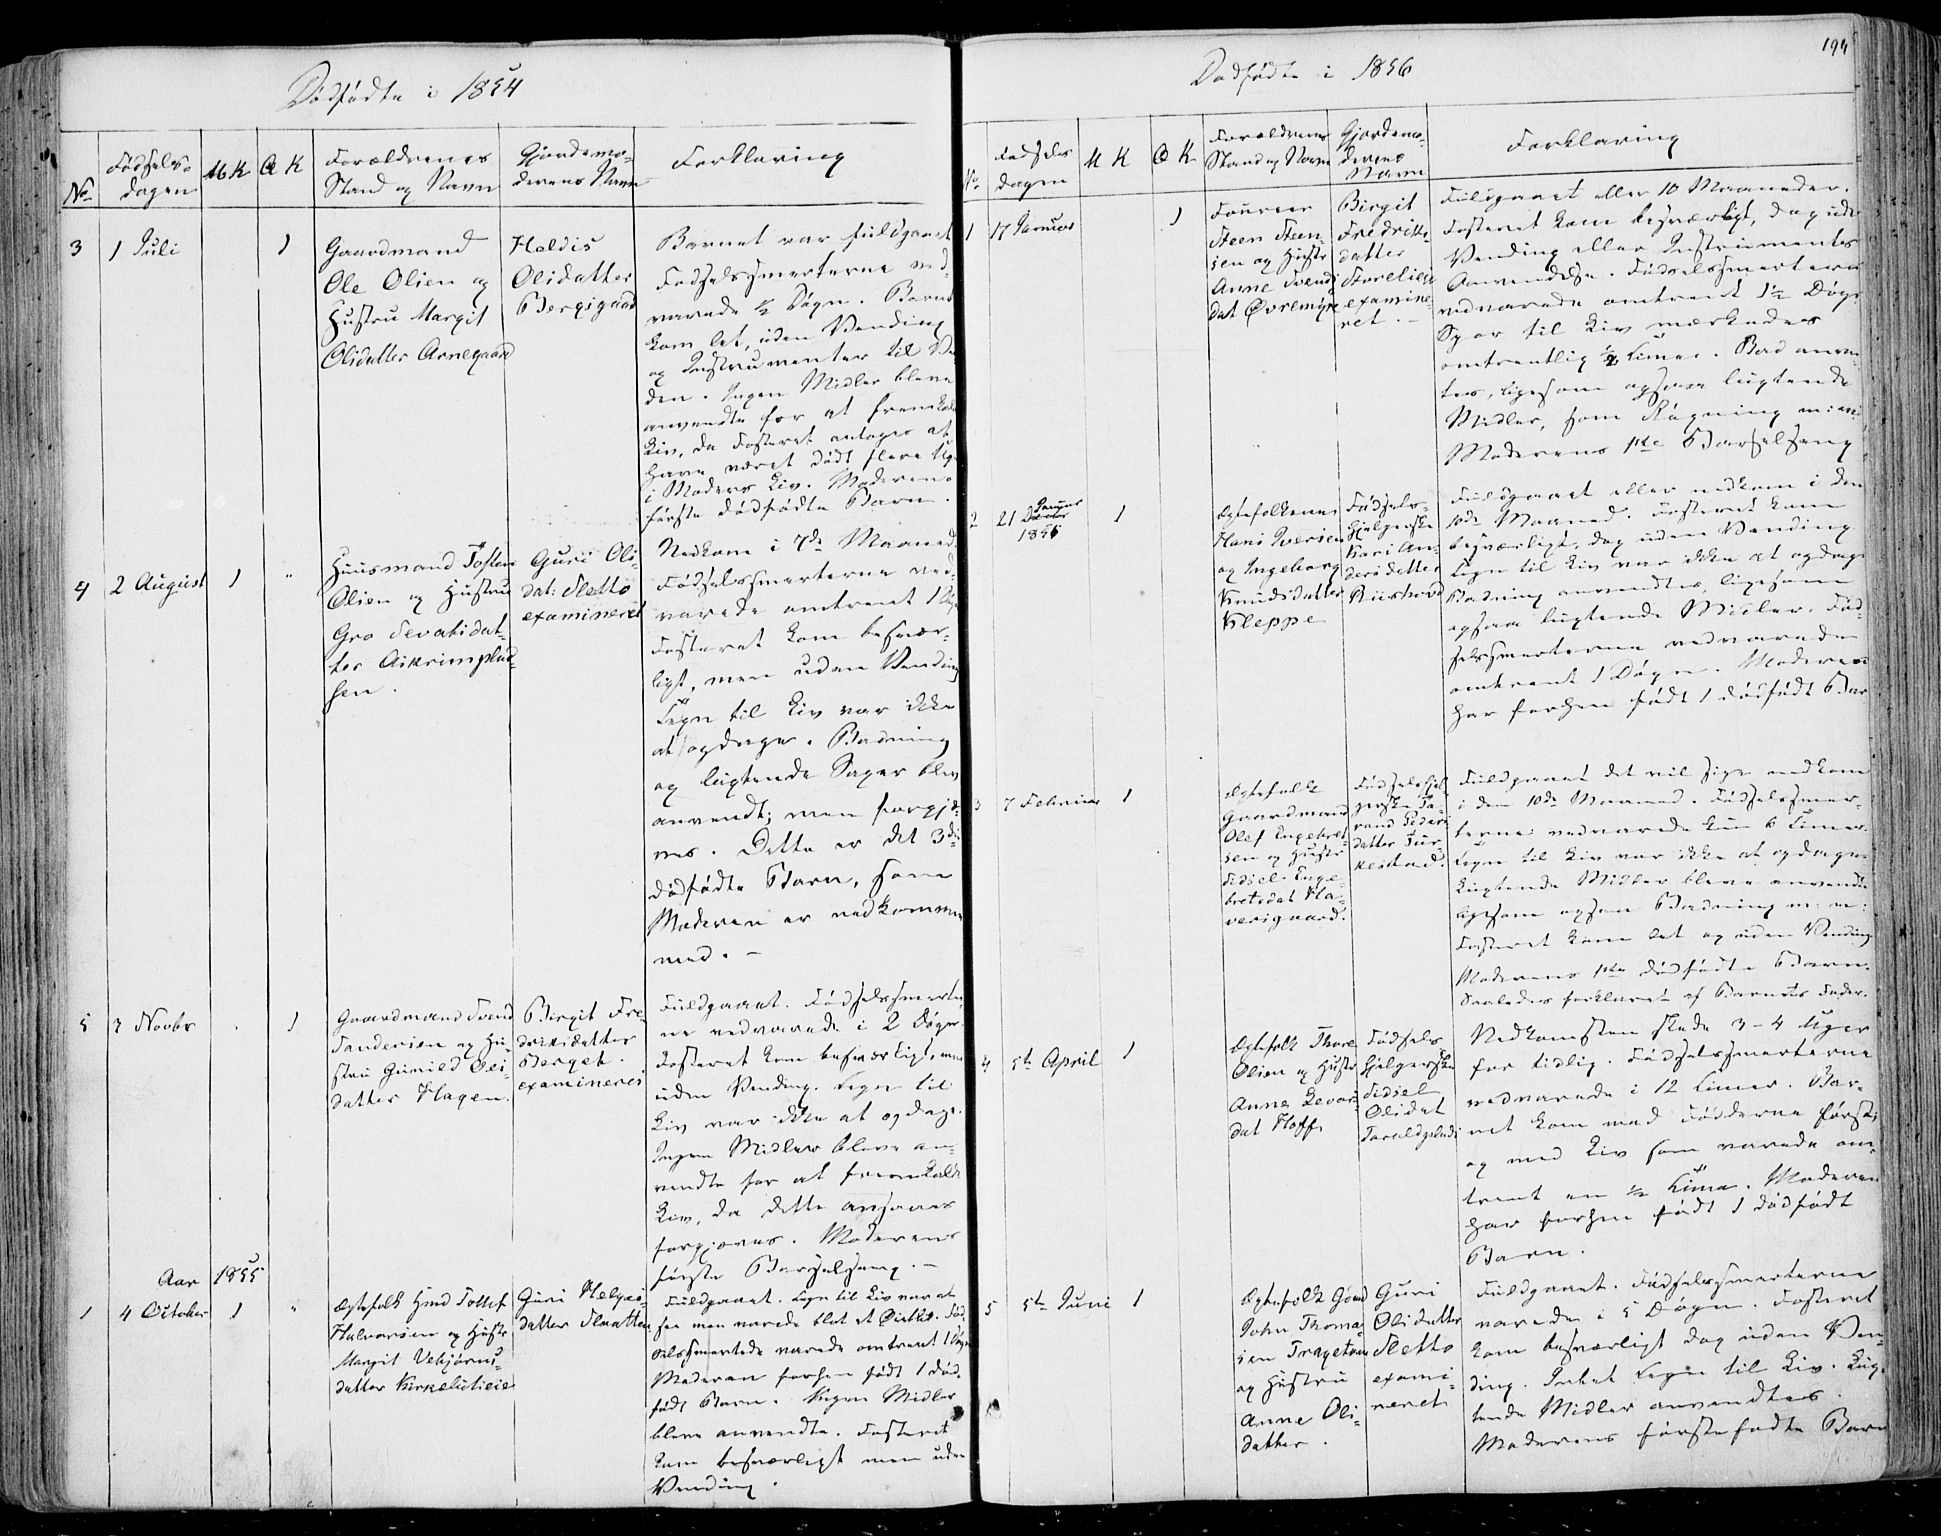 Dødfødte i 1854
No
Fødsels-
dagen
M K
Q K
Forældrenes
Stand og Navn
Gjordemo-
derens Navn
Forklaring
3
1 Juli
1
Gaardmand
Ole Olsen og
Hustru Margit
Olsdatter Arnegaard
Holdis
Olsdatter
Bergsgaard
Barnet var fuldgaaet
Fødselssmerterne ved
varede ½ Døgn. Barnet
kom let, uden Vending
og Instrumenter til
den. Ingen Midler bleve
anvendte for at fremkalde
Liv, da Fosteret antoges at
have været dødt flere
i Moders Liv. Moderens
første dødfødte Barn.
4
2 August
1
"
Huusmand Tosten
Olsen og Hustru
Gro Sevatsdat-
ter Aikrimplad-
sen.
Guri Ols-
dat: Sletto
examineret
Nedkom i 7de Maaned.
Fødselssmerterne ved-
varede omtrent 1
Fosteret kom besvær-
ligt, men uden Vending
Tegn til Liv var ikke
at opdage. Badning
og lugtende Sager blev
anvendt; men forgjæ-
ves. Dette er det 3die
dødfødte Barn, som
Moderen er nedkommen
med. –
5
3 Novbr
.
1
Gaardmand Svend
Sandersen og Hu-
stru Gunild Ols-
datter Hagen.
Birgit Fre-
driksdatter
Berget.
examineret
Fuldgaaet. Fødselssmerter-
ne vedvarede i 2 Døgn.
Fosteret kom besværligt, men
uden Vending. Tegn til
Liv var ikke at opdage.
Ingen Midler bleve an-
vendte for at fremkalde
Liv, da dette ansaaes
forgjæves. Moderens
første Barselseng. –
Aar 1855
1
4 October
1
"
Ægtefolk Hmd Tollef
Halvorsen og Hustr
Margit Vebjørns-
datter Kirkelieeie
Guri Helges-
datter Slaatten
Fuldgaaet. Tegn til Liv var at
see men varede blot et Øieblik. Fød-
selssmertede varede omtrent 1 Døgn
Moderen forhen født 1 død-
født Barn. Ingen Midler
bleve anvendte. Fosteret
kom besværligt men uden
Vending.
Dødfødte i 1856
194
No
Fødsels
dagen
M K
Q K
Forældrenes
Stand og Navn
Gjordemo-
derens
Navn
Forklaring
1
17 Januar
1
Foureer
Steen Steen-
sen og Hustr
Anne Svends
dat Øvremyre
Birgit
Fredriks-
datter
examine-
ret. –
Fuldgaaet eller 10 Maaneder.
Fosteret kom besværligt, dog uden
Vending eller Instrumenters
Anvendelse. Fødselssmerterne
vedvarede omtrent 1½ Døgn
Spor til Liv mærkedes
omtrentlig ½ Time. Bad anven-
tes, ligesom ogsaa lugtende
Midler, som Røgning m: m:
Moderens 1ste Barselseng
2
21 Januar
1856
1
Ægtefolkene
Hans Iversen
og Ingeborg
Knudsdatter
Kleppe
Fødsels-
hjelperske
Kari An-
dersdatter
Fuldgaaet eller nedkom i den
10de Maaned. Fosteret kom
besværligt, dog uden Vending
Tegn til Liv var ikke at opdage
Badning anvendtes, ligesom
ogsaa lugtende Midler. Fød-
selssmerterne vedvarede
omtrent 1 Døgn. Moderen
har forhen født 1 dødfødt Bar
3
7 Februar
1
Ægtefolk
Gaardmand
Olef Engebret-
sen og Hustr
Sidsel Enge-
bretsdat Ha-
versgaard.
Fødselshjel-
perske
Peders
datter
Fuldgaaet det vil sige nedkom
i den 10de Maaned. Fødselssmer-
terne vedvarede kun 6 Timer.
Tegn til Liv var ikke at opdage.
Lugtende Midler bleve anvendte
ligesom ogsaa Badning m: m:
Fosteret kom let og uden Vending
Moderens 1ste dødfødte Barn.
Saaledes forklaret af Barnets Fader.
4
5te April
1
Ægtefolk Thore
Olsen og Hustr
Anne Levor
dat Hoff
Fødsels
hjelperske
Sidsel
Olsdat
Nedkomsten skede 3-4 Uger
for tidlig. Fødselssmerterne
vedvarede i 12 Timer. Bar-
net kom med Fødderne først,
og med Liv som varede om-
trent en ½ Time. Moderen
har forhen født 1 dødfødt
Barn.
5
5te Juni
1
Ægtefolk Gmd
John Thoma-
sen Trageton
og Hustru
Anne Ols-
datter.
Guri
Olsdatter
Sletto
exami-
neret
Fuldgaaet. Fødselssmerterne
varede i 5 Døgn. Fosteret
kom besværligt dog uden Ven-
ding. Intet Tegn til Liv. Lug-
tende Midler anvendtes.
Moderens førstefødte Barn